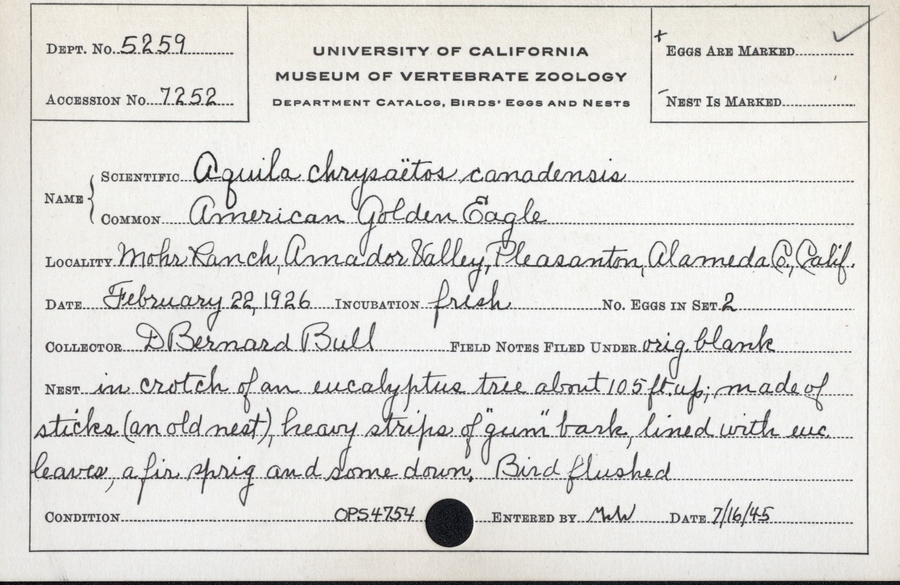 DEPT. No. 5259
ACCESSION No. 7252
UNIVERSITY OF CALIFORNIA
MUSEUM OF VERTEBRATE ZOOLOGY
DEPARTMENT CATALOG, BIRDS' EGGS AND NESTS
+ EGGS ARE MARKED ✓
- NEST IS MARKED
NAME { SCIENTIFIC Aquila chrysaëtos canadensis
COMMON American Golden Eagle
LOCALITY Mohr Ranch, Amador Valley, Pleasanton, Alameda Co., Calif.
DATE February 22, 1926 INCUBATION fresh No. EGGS IN SET 2
COLLECTOR D Bernard Bull FIELD NOTES FILED UNDER orig. blank
NEST in crotch of an eucalyptus tree about 105 ft. up; made of
sticks (an old nest), heavy strips of "gum" bark, lined with euc.
leaves, a fir sprig and some down. Bird flushed
CONDITION OPS4754 ENTERED BY MW DATE 7/16/45